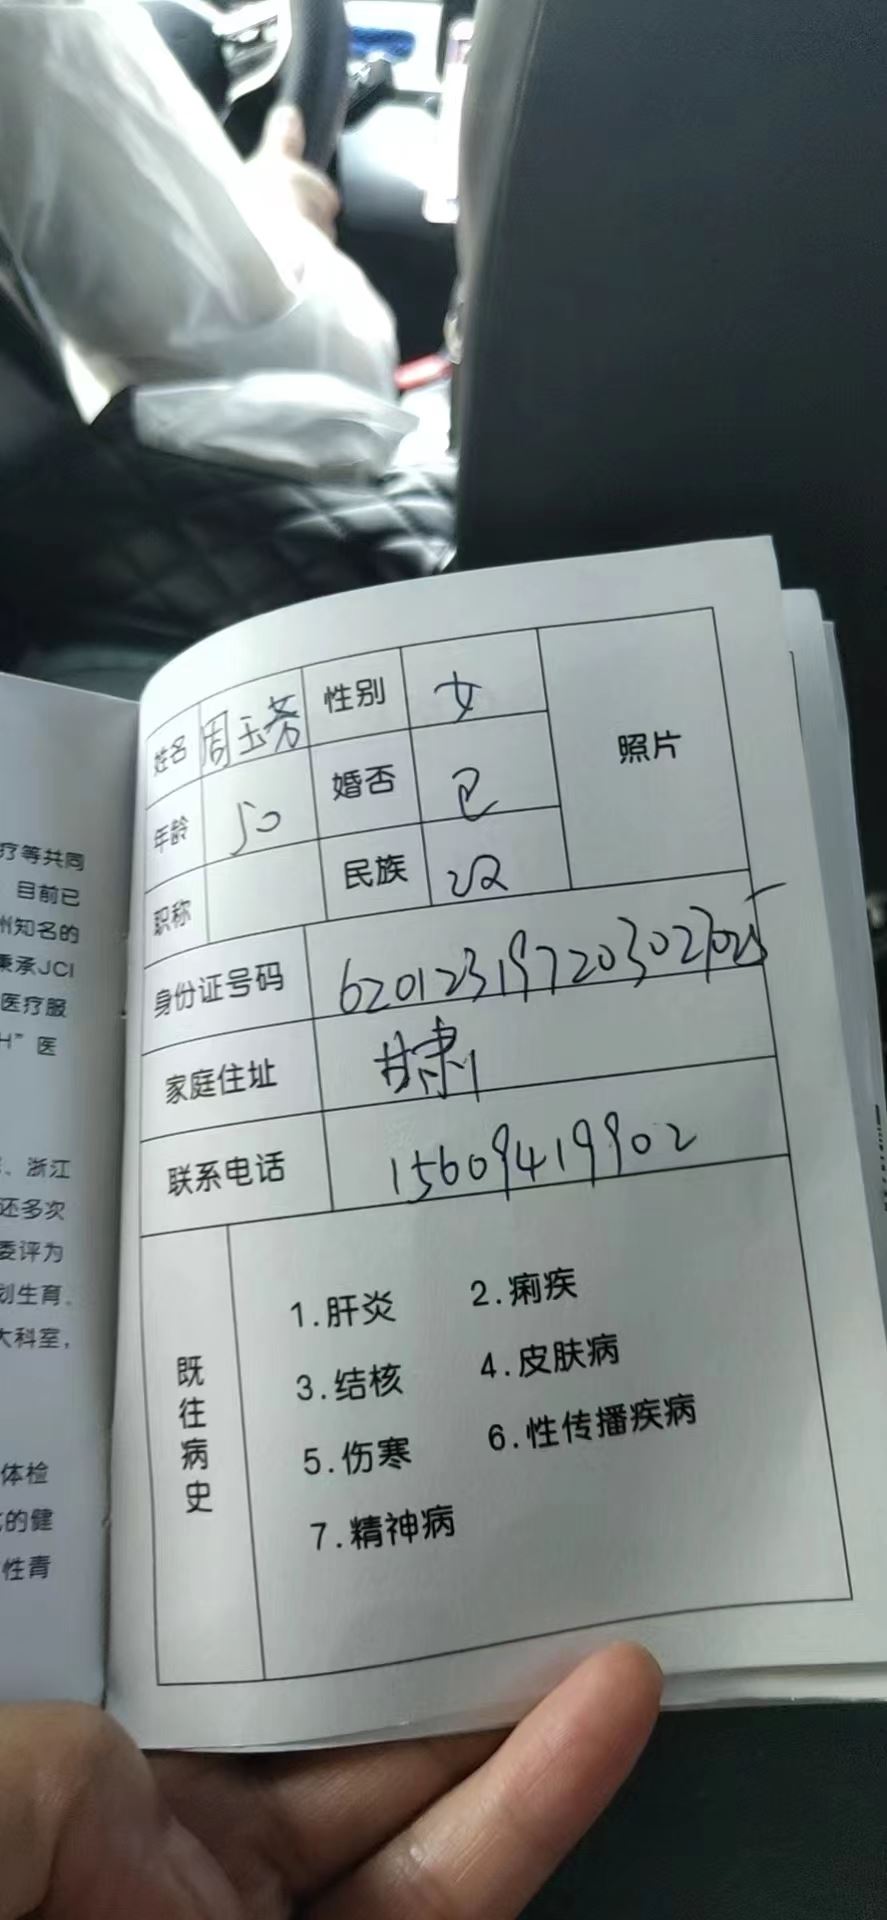 疗等共同
目前已
州知名的
秉承JCI
医疗服
H”医
、浙江
还多次
委评为
划生育、
大科室，
体检
的健
性青
姓名 周玉芳 性别 女 照片
年龄 50 婚否 已
职称 民族 汉
身份证号码
家庭住址 甘肃
联系电话 15609419902
既往病史
1.肝炎 2.痢疾
3.结核 4.皮肤病
5.伤寒 6.性传播疾病
7.精神病